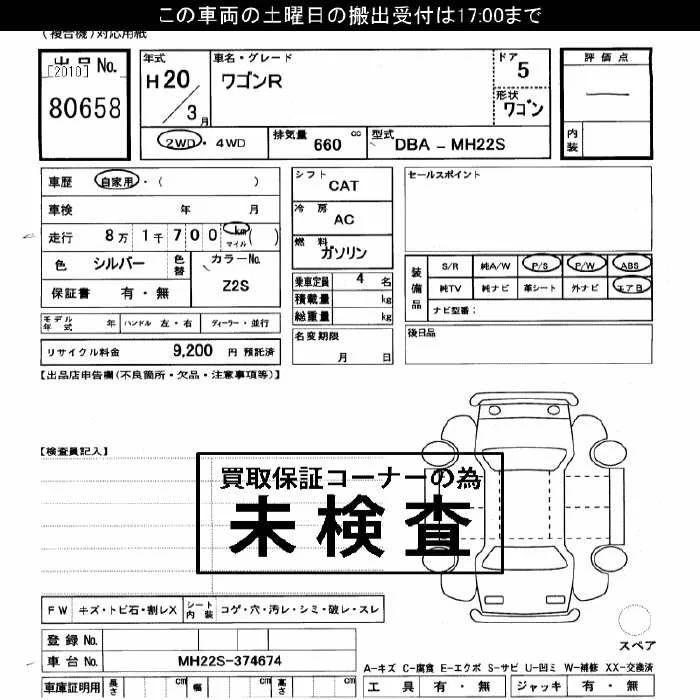 この車両の土曜日の搬出受付は17:00まで
(複合機)対応用紙
出品No.
[2010]
80658
年式
H20
/3月
車名・グレード
ワゴンR
ドア
5
形状
ワゴン
評価点
―
内装
2WD・4WD
排気量 660 cc
型式 DBA - MH22S
車歴 自家用・( )
車検 年 月
走行 8万1千700 km マイル ( )
色 シルバー 色替
カラーNo.
Z2S
保証書 有・無
シフト
CAT
冷房
AC
燃料
ガソリン
乗車定員 4 名
積載量 kg
総重量 kg
セールスポイント
装備品
S/R 純A/W P/S P/W ABS
純TV 純ナビ 革シート 外ナビ エアB
ナビ型番:
モデル年式 年 ハンドル 左・右 ディーラー・並行
リサイクル料金 9,200 円 預託済
名変期限
月 日
後日品
【出品店申告欄(不良箇所・欠品・注意事項等)】
【検査員記入】
買取保証コーナーの為
未検査
FW キズ・トビ石・割レX シート内装 コゲ・穴・汚レ・シミ・破レ・スレ
登録No.
車台No. MH22S-374674
車庫証明用 長さ cm 幅 cm 高さ cm
スペア
A-キズ C-腐食 E-エクボ S-サビ U-凹ミ W-補修 XX-交換済
工具 有・無 ジャッキ 有・無